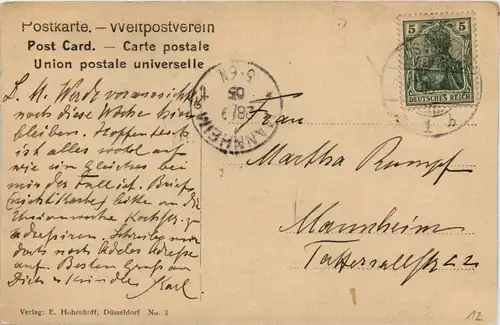 Postkarte. — Weltpostverein
Post Card. — Carte postale
Union postale universelle
5 5
DEUTSCHES REICH
MANNHEIM
5-6N
05
L. M. Werde voraussichtl.
noch diese Woche hier
bleiben. Hoffentlich
ist alles wohl auf
wie ein Gleiches bei
mir der Fall ist. Brief
(nicht Karte) bitte an die
zu
adressiren. Schreibe mir
doch noch Adeles Adresse
auf. Besten Gruss an
Dich & Kindle
Karl
Frau
Martha Rumpf
Mannheim
Tattersallstr 22
Verlag: E. Hohenhoff, Düsseldorf No. 2
12